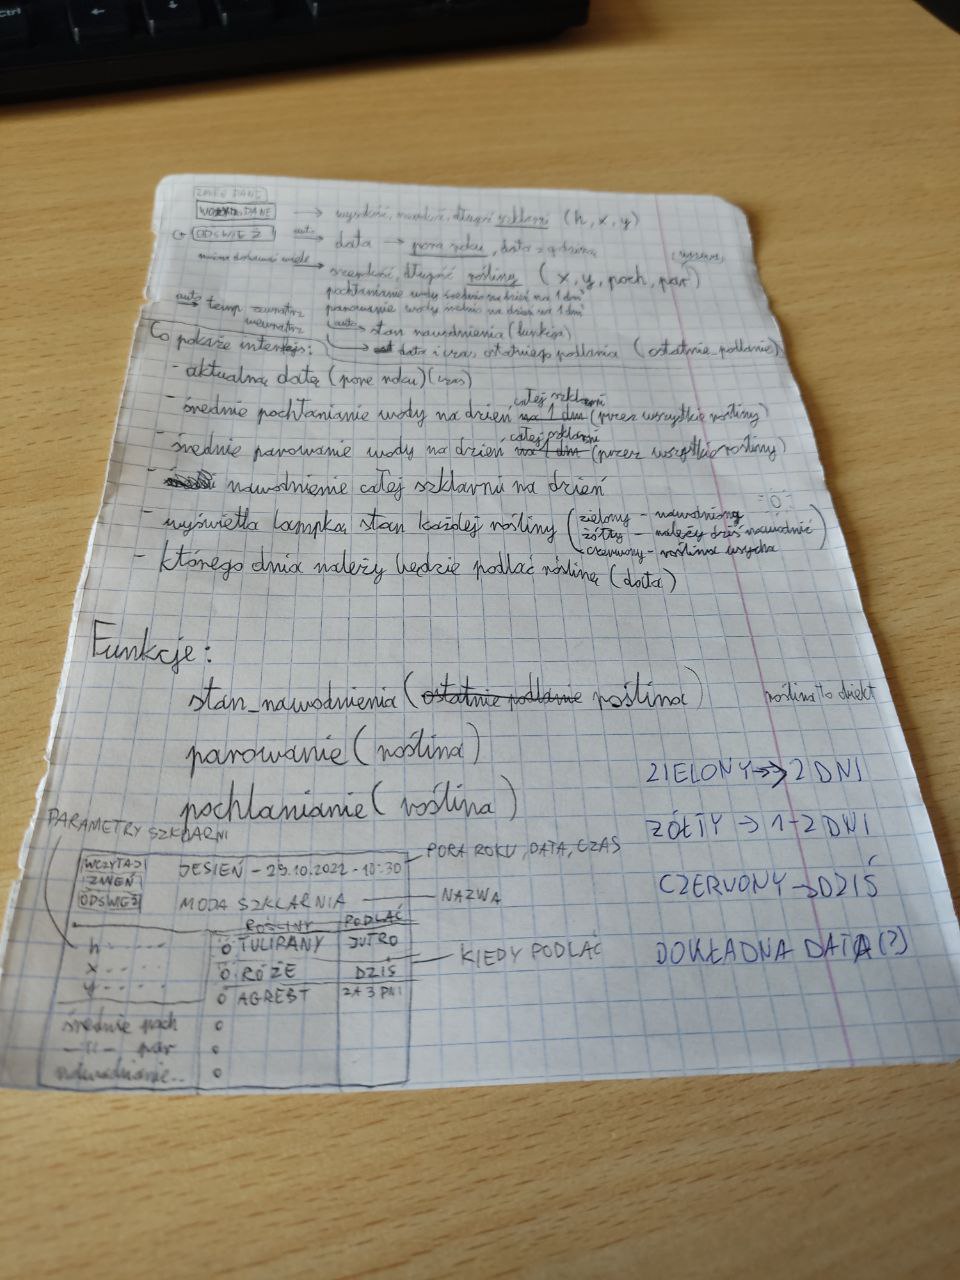 Ctrl
ZMIEŃ DANE
WCZYTAJ DANE → wysokość, szerokość, długość szklarni (h, x, y)
ODŚWIEŻ auto → data → pora roku, data z godziną
można dodawać więcej → szerokość, długość rośliny (x, y, poch, par)
pochłanianie wody średnio na dzień na 1 dm³
auto → temp zewnątrz parowanie wody średnio na dzień na 1 dm³
wewnątrz auto → stan nawodnienia (funkcja)
Co pokaże interfejs: → data i czas ostatniego podlania (ostatnie_podlanie)
- aktualną datę (porę roku) (czas)
- średnie pochłanianie wody na dzień na 1 dm całej szklarni (przez wszystkie rośliny)
- średnie parowanie wody na dzień na 1 dm całej szklarni (przez wszystkie rośliny)
- nawodnienie całej szklarni na dzień
- wyświetla lampką stan każdej rośliny (zielony - nawodniona
żółty - należy dziś nawodnić
czerwony - roślina usycha)
- którego dnia należy będzie podlać roślinę (data)
Funkcje:
stan_nawodnienia (ostatnie podlanie roślina) roślina to obiekt
parowanie (roślina)
pochłanianie (roślina)
ZIELONY →> 2 DNI
ŻÓŁTY → 1-2 DNI
CZERWONY → DZIŚ
DOKŁADNA DATA (?)
PARAMETRY SZKLARNI
WCZYTAJ JESIEŃ - 29.10.2022 - 10:30 PORA ROKU, DATA, CZAS
ZMIEŃ
ODŚWIEŻ MODA SZKLARNIA NAZWA
ROŚLINY PODLAĆ
h ..... TULIPANY JUTRO
x .... RÓŻE DZIŚ KIEDY PODLAĆ
y .... AGREST ZA 3 DNI
średnie poch
-"- par
nawadnianie..